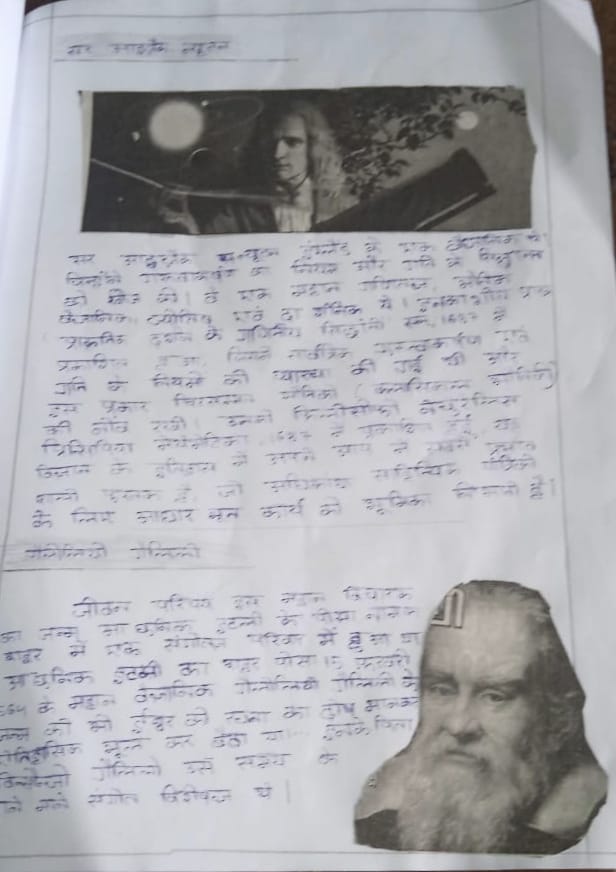 सर आइजैक न्यूटन
सर आइजैक न्यूटन इंग्लैंड के एक वैज्ञानिक थे।
जिन्होंने गुरुत्वाकर्षण का नियम और गति के सिद्धान्त
की खोज की। वे एक महान गणितज्ञ, भौतिक
वैज्ञानिक, ज्योतिष एवं दार्शनिक थे। इनका शोध प्रपत्र
प्राकृतिक दर्शन के गणितीय सिद्धांतों सन् 1687 में
प्रकाशित हुआ, जिसमें सार्वत्रिक गुरुत्वाकर्षण एवं
गति के नियमों की व्याख्या की गई थी और
इस प्रकार चिरसम्मत भौतिकी (क्लासिकल भौतिकी)
की नींव रखी। उनकी फिलोसोफी नेचुरेलिस
प्रिंसिपिया मेथेमेटिका, 1687 में प्रकाशित हुई, यह
विज्ञान के इतिहास में अपने आप में सबसे प्रभाव
शाली पुस्तक है, जो अधिकांश साहित्यिक यांत्रिकी
के लिए आधारभूत कार्य की भूमिका निभाती है।
गैलीलियो गैलिली
जीवन परिचय इस महान विचारक
का जन्म आधुनिक इटली के पीसा नामक
शहर में एक संगीतज्ञ परिवार में हुआ था
आधुनिक इटली का शहर पीसा 15 फ़रवरी
1564 के महान वैज्ञानिक गैलीलियो गैलिली के
जन्म को भी ईश्वर की रचना का दोष मानकर
ऐतिहासिक भूल कर बैठा था... इनके पिता
विन्सौन्जो गैलिली उस समय के
जाने माने संगीत विशेषज्ञ थे।